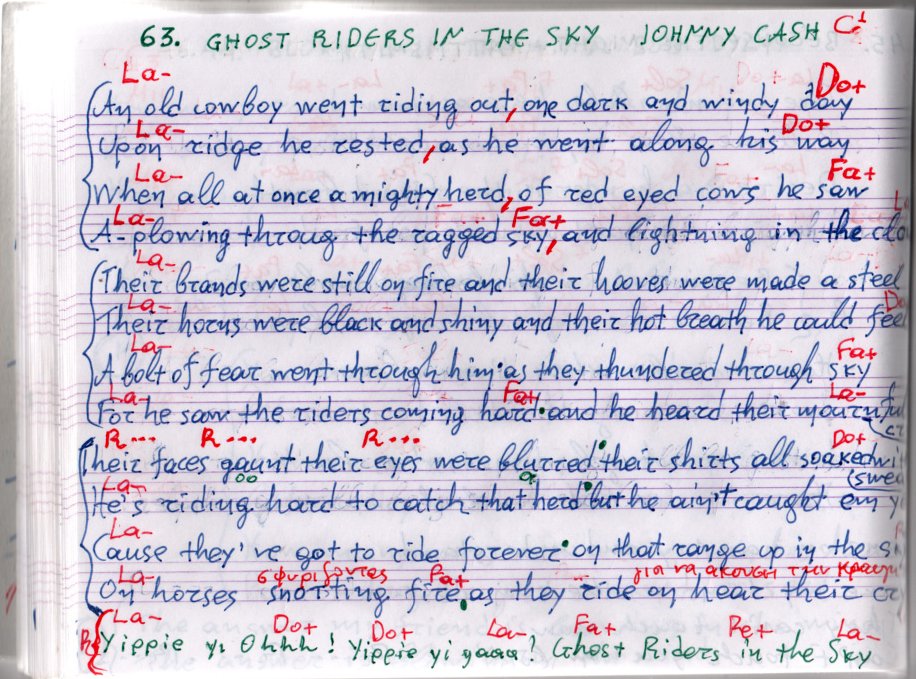 63. GHOST RIDERS IN THE SKY JOHNNY CASH C1
La- Do+
An old cowboy went riding out, one dark and windy day
La- Do+
Upon ridge he rested, as he went along his way
La- Fa+
When all at once a mighty herd, of red eyed cows he saw
La- Fa+
A-plowing throug the ragged sky, and lightning in the
La-
Their brands were still on fire and their hooves were made a steel
La-
Their horns were black and shiny and their hot breath he could feel
La- Fa+
A bolt of fear went through him as they thundered through sky
La- Fa+ La-
For he saw the riders coming hard and he heard their
R... R... R... Do+
Their faces gaunt their eyes were blurred their shirts all soaked
La-
He's riding hard to catch that herd but he ain't caught em
La-
Cause they've got to ride forever on that range up in the
La- σφυριζοντας Fa+ για να ακουση την
On horses snorting fire as they ride on hear their
La- Do+ Do+ La- Fa+ Re+ La-
Yippie yi Ohhh! Yippie yi yaaa Ghost Riders in the Sky